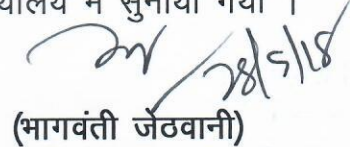 में सुनाया गया ।
28/5/18
(भागवंती जेठवानी)